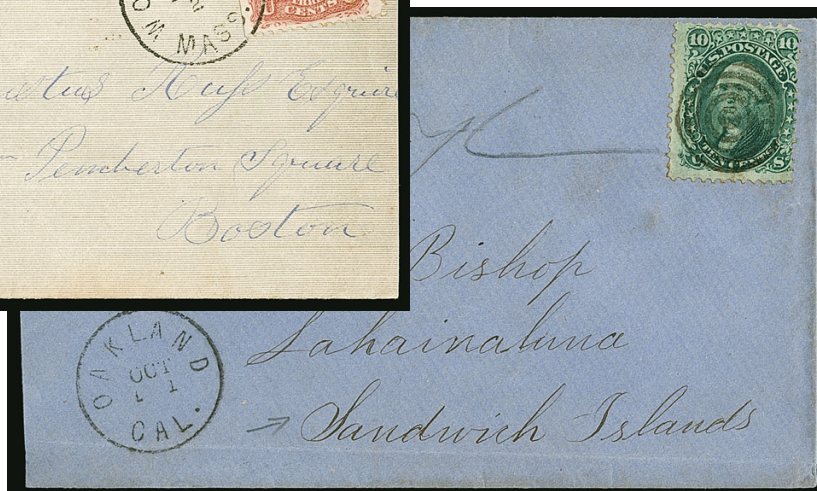 2
OM MASS.
CENTS
Esquire
Pemberton Square
Boston
10 U.S. POSTAGE 10
TEN CENTS
U S
Bishop
Lahainaluna
Sandwich Islands
OAKLAND
OCT
1
CAL.